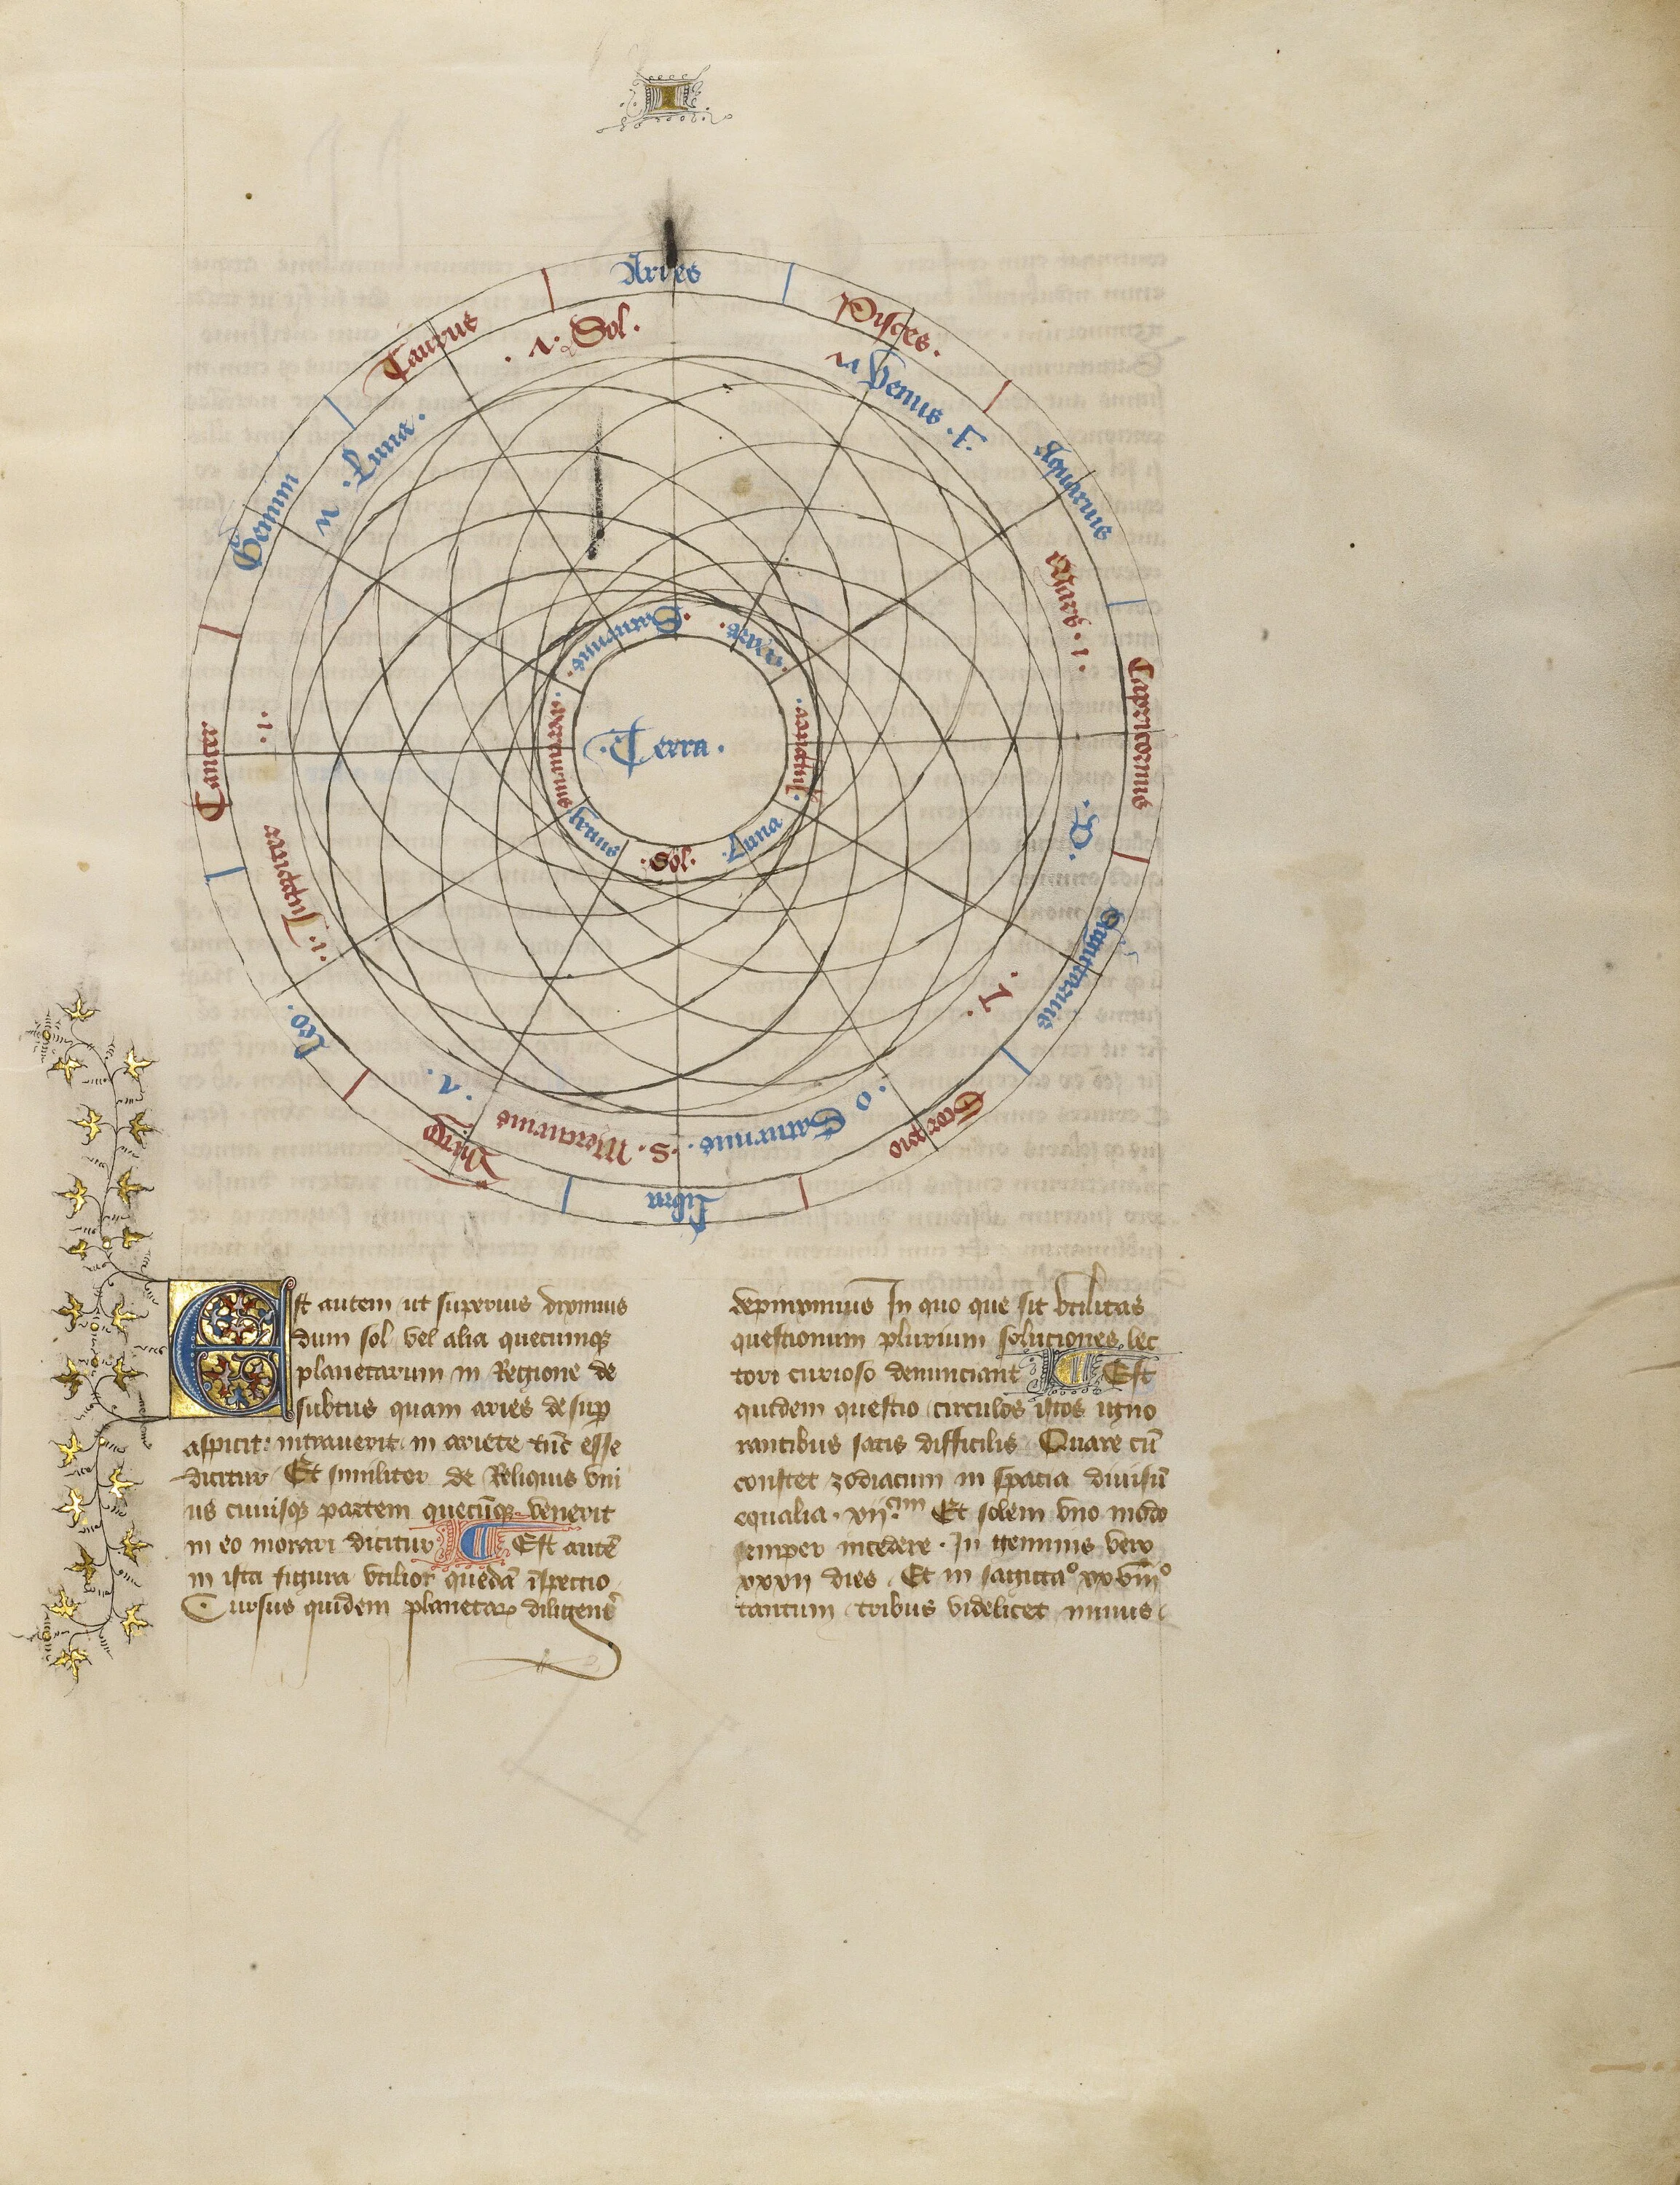 I
Aries
Pisces.
Aquarius
Capricornus
Sagittarius
Scorpio
Libra
Virgo
Leo.
Cancer
Gemini
Taurus
Sol.
Venus . F.
Mars . 1 .
. D .
. o Saturnus .
. S . Mercurius
. 1 . Jupiter
. 1 .
Luna .
Saturnus .
Mars .
Jupiter .
. Luna
. Sol .
Venus
Mercurius .
. Terra .
Est autem ut superius diximus
dum sol vel alia quecumqꝫ
planetarum in Regione de
subtus quam aries desuꝑ
aspicit: intrauerit in ariete tūc esse
dicitur Et similiter de Reliquis vni
us cuiusqꝫ partem quecūqꝫ venerit
in eo morari dicitur Est autē
in ista figura vtilior quedā īspectio
Cursus quidem planetaꝝ diligent᷒
depinximus In quo que sit vtilitas
questionum plurium soluciones lec
tori curioso denunciant Est
quidem questio circulos istos igno
rantibus satis difficilis Quare cū
constet zodiacum in spacia diuisū
equalia . xij.cim Et solem vno modo
semper incedere . In geminis vero
xxxij dies . Et in sagitta° xxviii°
tantum tribus videlicet minus